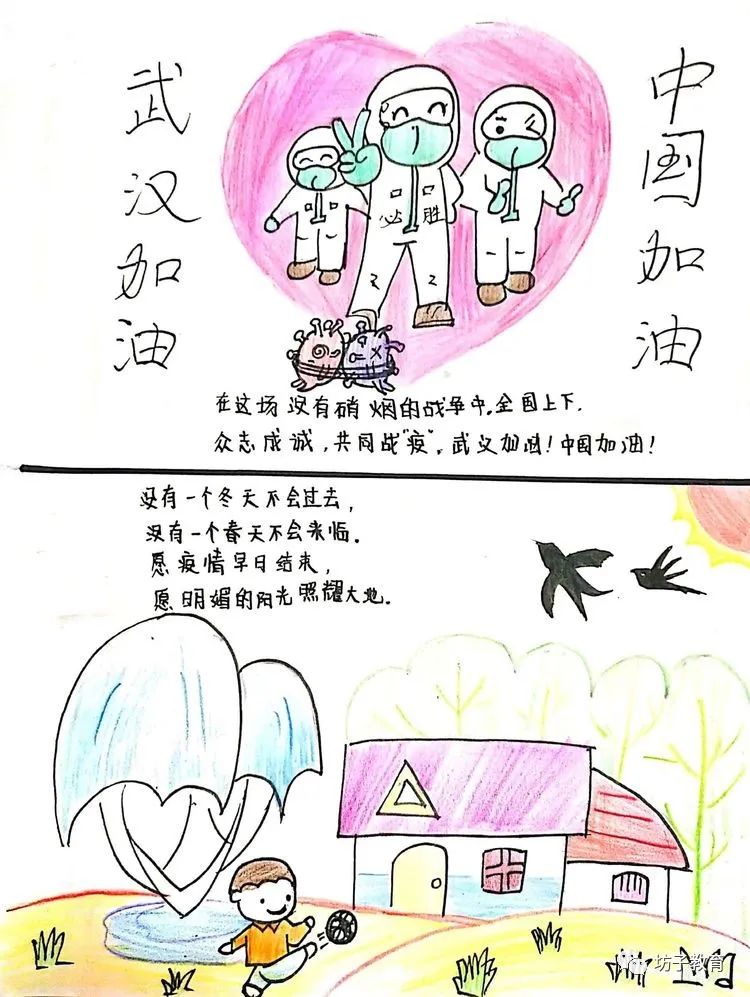 武汉加油
中国加油
必胜
在这场没有硝烟的战争中,全国上下,
众志成诚,共同战"疫",武汉加油!中国加油!
没有一个冬天不会过去,
没有一个春天不会来临.
愿疫情早日结束,
愿明媚的阳光照耀大地.
坊子教育